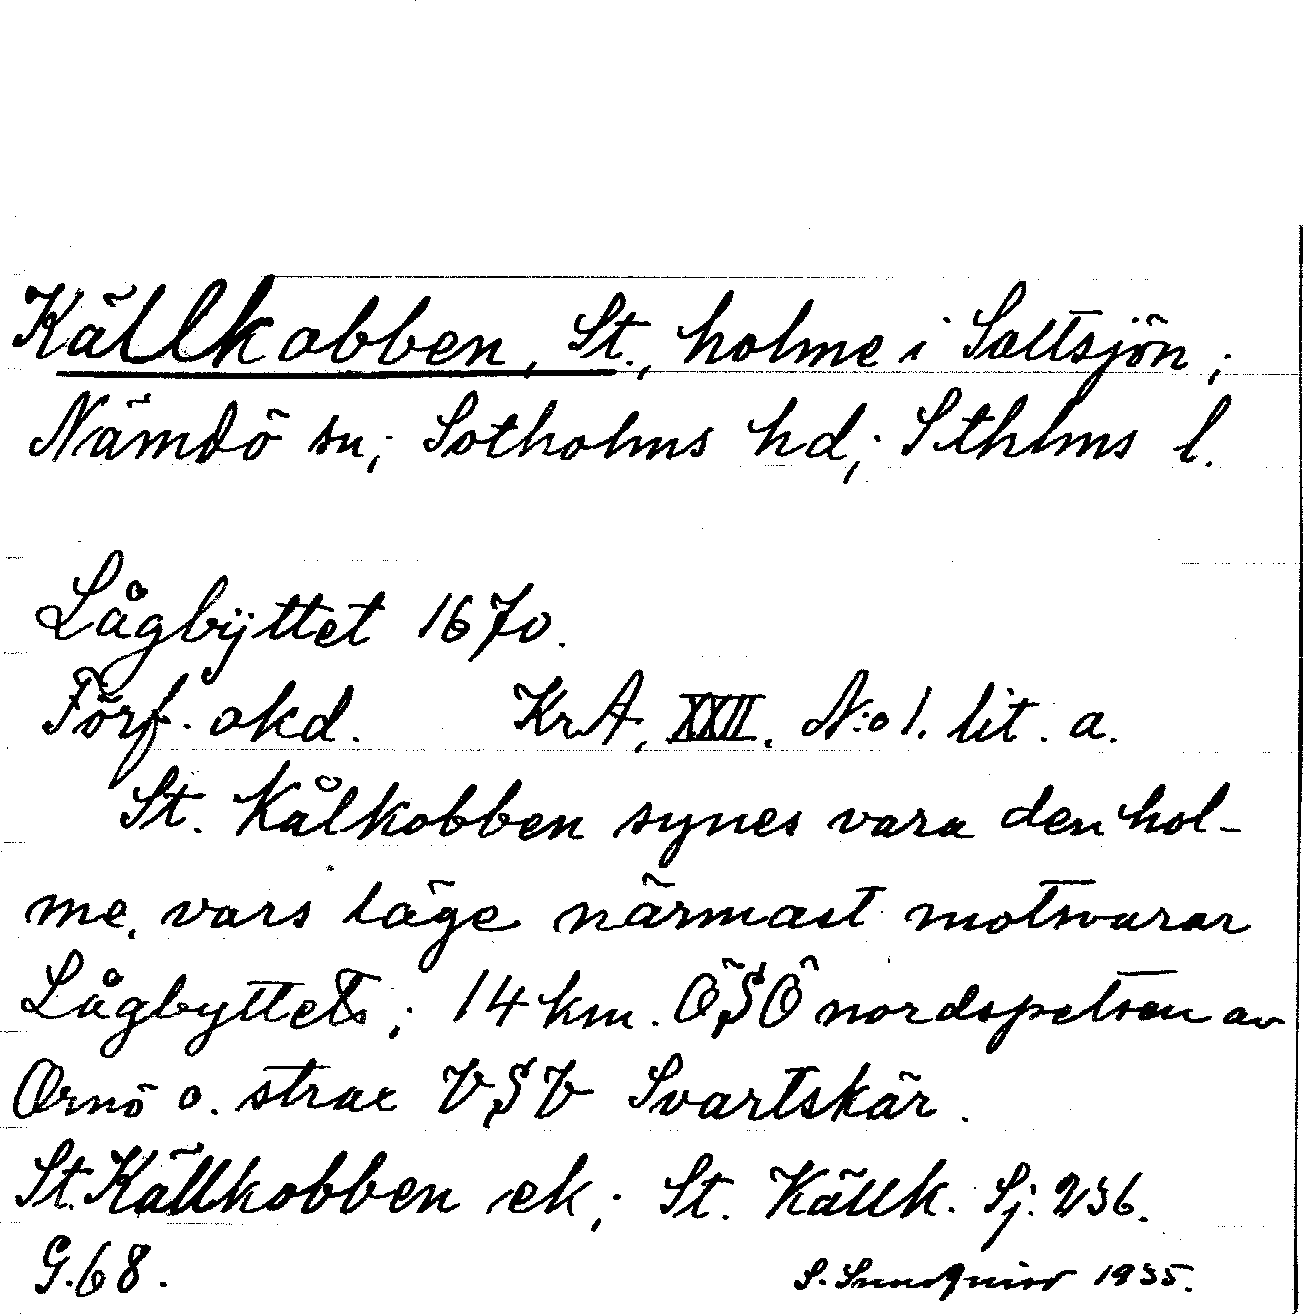 Källkobben, St., holme i Saltsjön;
Nämdö sn; Sotholms hd; Sthlms l.
Lågbÿttet 1670.
Förf. okd. KrA, XXII. N:o 1. lit. a.
St. Kålkobben synes vara den hol-
me, vars läge närmast motsvarar
Lågbyttets; 14 km. ÖSÖ nordspetsen av
Ornö o. strax VSV Svartskär.
St. Källkobben ek; St. Källk. Sj: 236.
G. 68. S. Sundquist 1935.